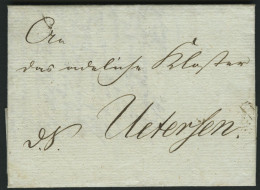 An
das adeliche Kloster
d. N. Uetersen.